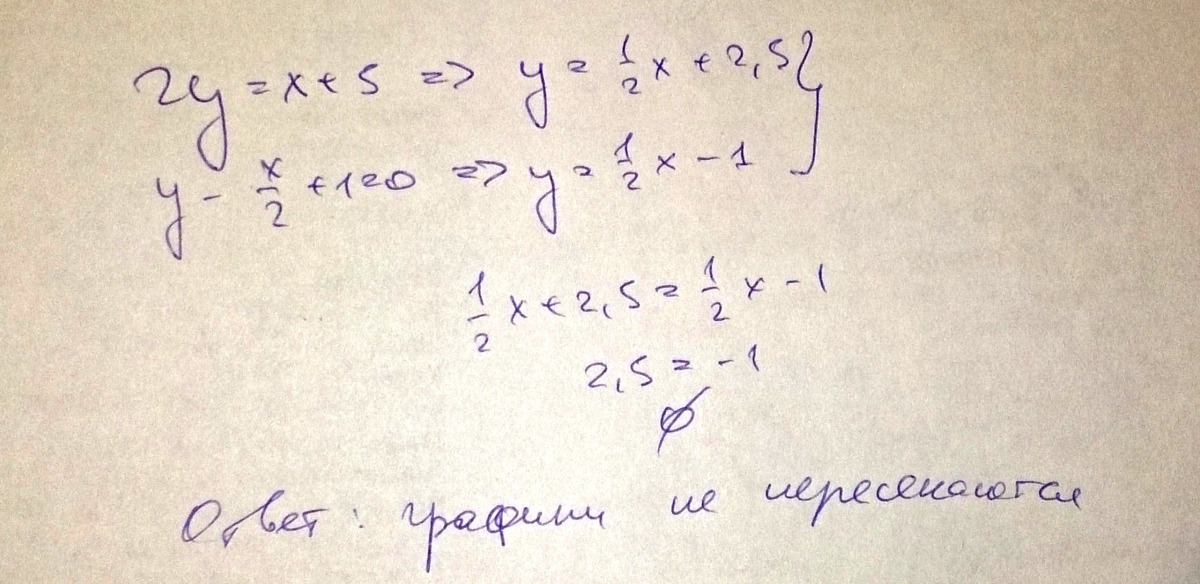 2y = x + 5 => y = 1/2 x + 2,5 }
y - x/2 + 1 = 0 => y = 1/2 x - 1
1/2 x + 2,5 = 1/2 x - 1
2,5 = -1
∅
Ответ: графики не пересекаются